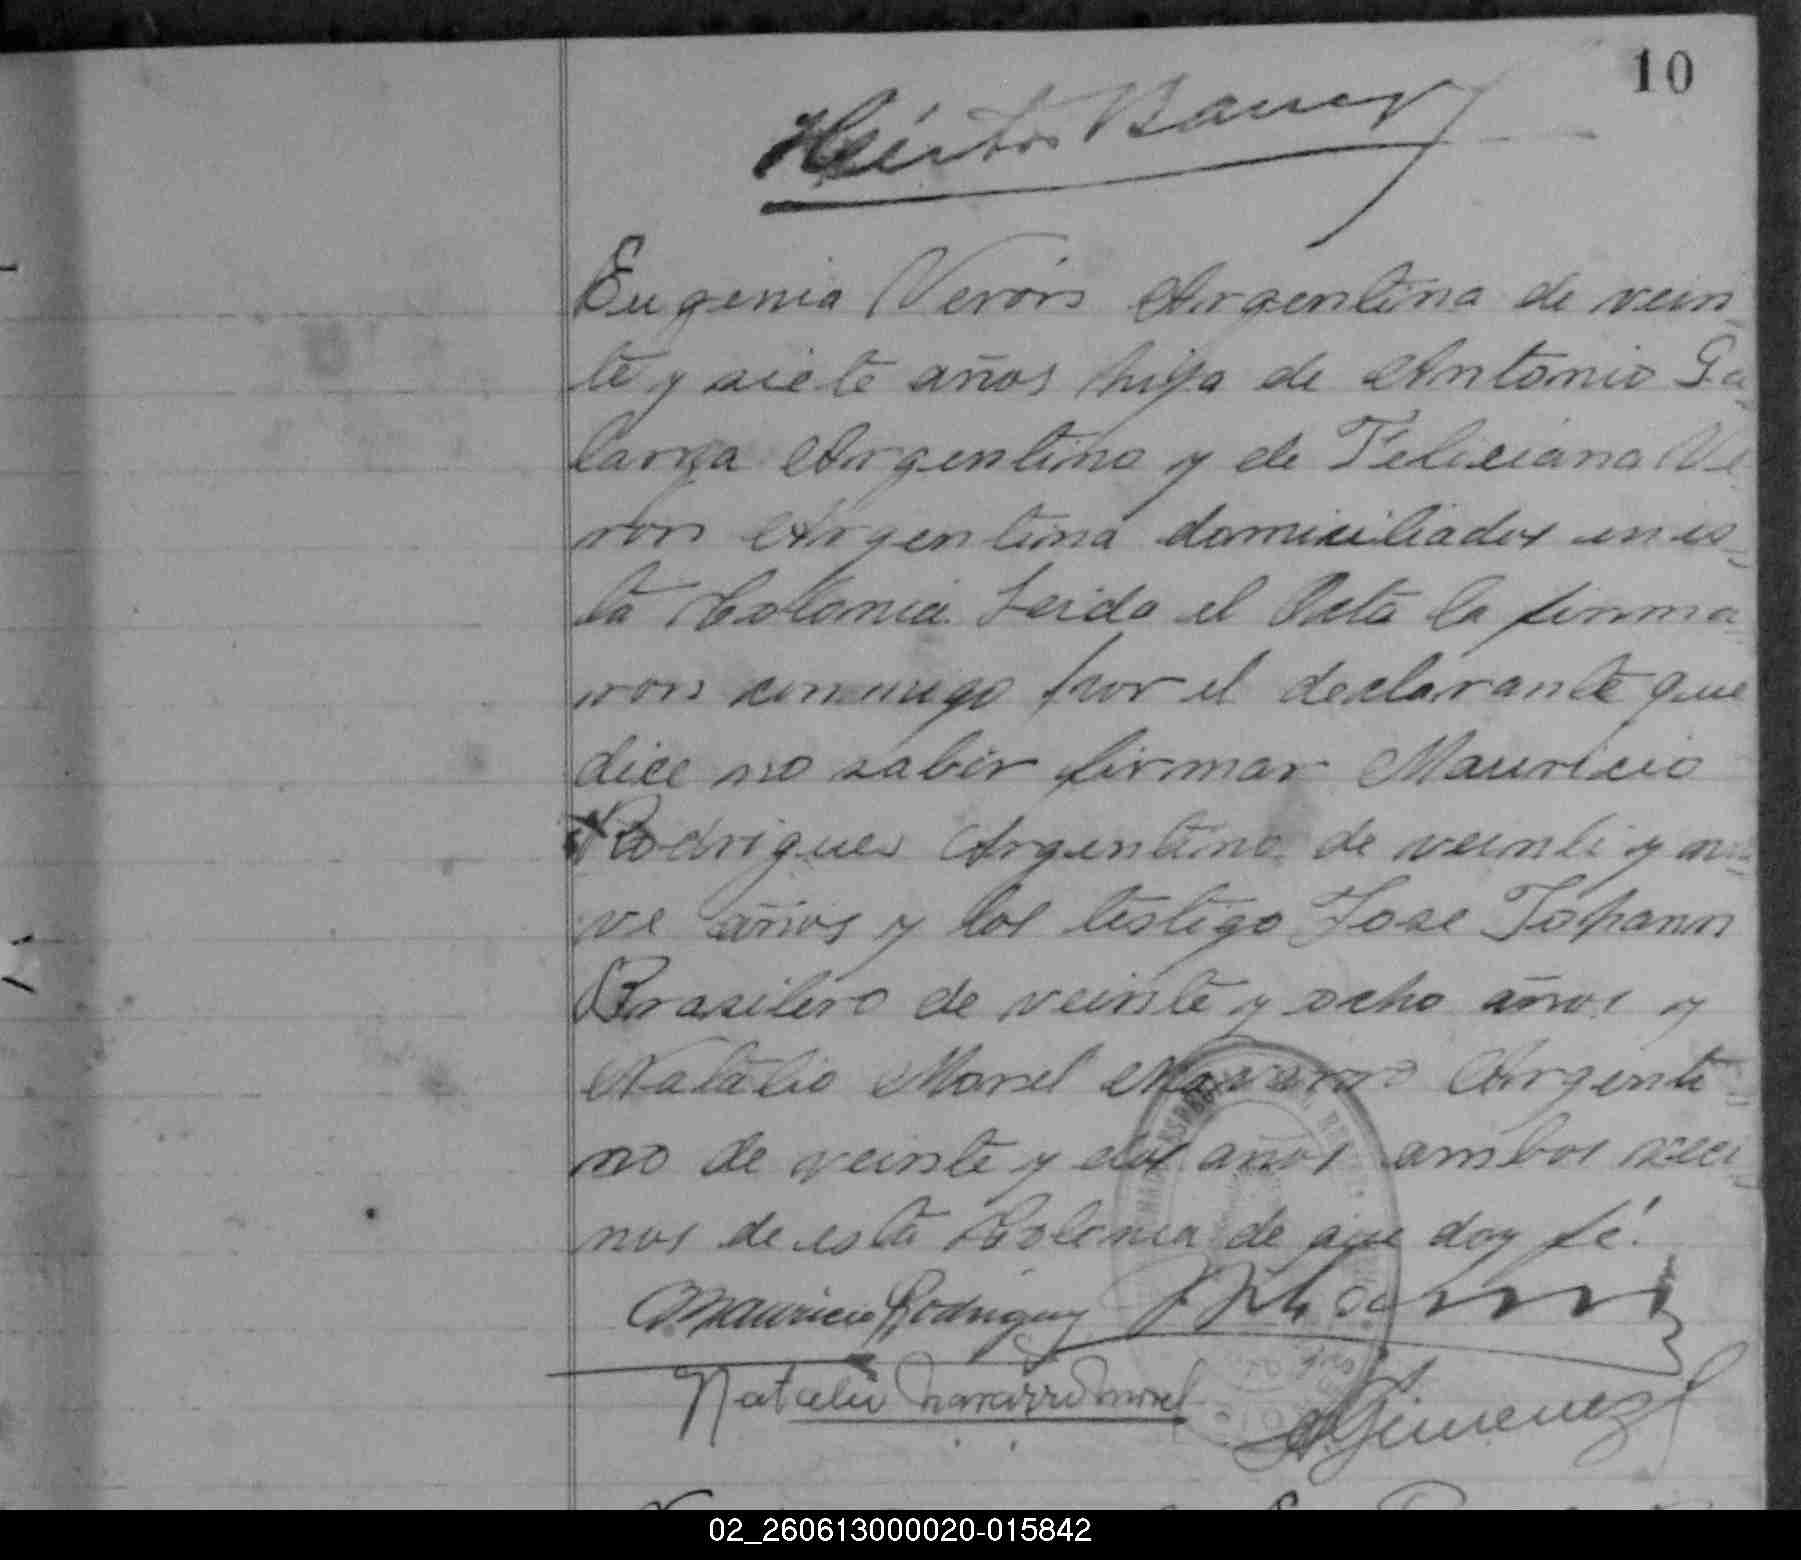 10
Eugenia Verón Argentina de vein
te y siete años hija de Antonio Ga=
larza Argentino y de Feliciana Ve=
ron Argentina domiciliados en es=
ta Colonia. Leida el Acta la firma=
ron conmigo por el declarante que
dice no saber firmar Mauricio
Rodriguez Argentino de veinti y nue=
ve años y los testigo Jose Johann
Brasilero de veinte y ocho años y
Natalio Morel Navarro Argenti=
no de veinte y dos años ambos veci=
nos de esta Colonia de que doy fé.
Mauricio Rodriguez
Natalio Navarro Morel
Gimenez
02_260613000020-015842